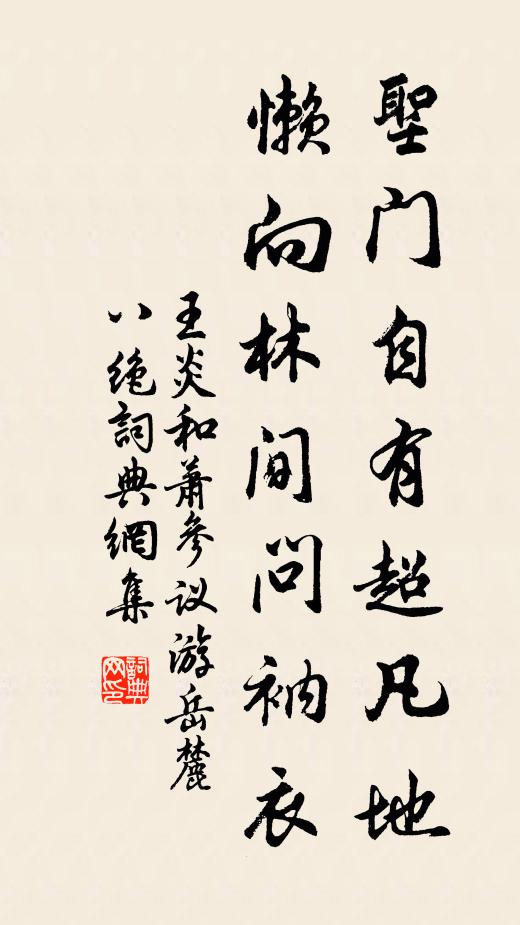 聖门自有超凡地
懒向林间问衲衣
王炎和萧参议游岳麓
八绝詞典網集
詞典网印